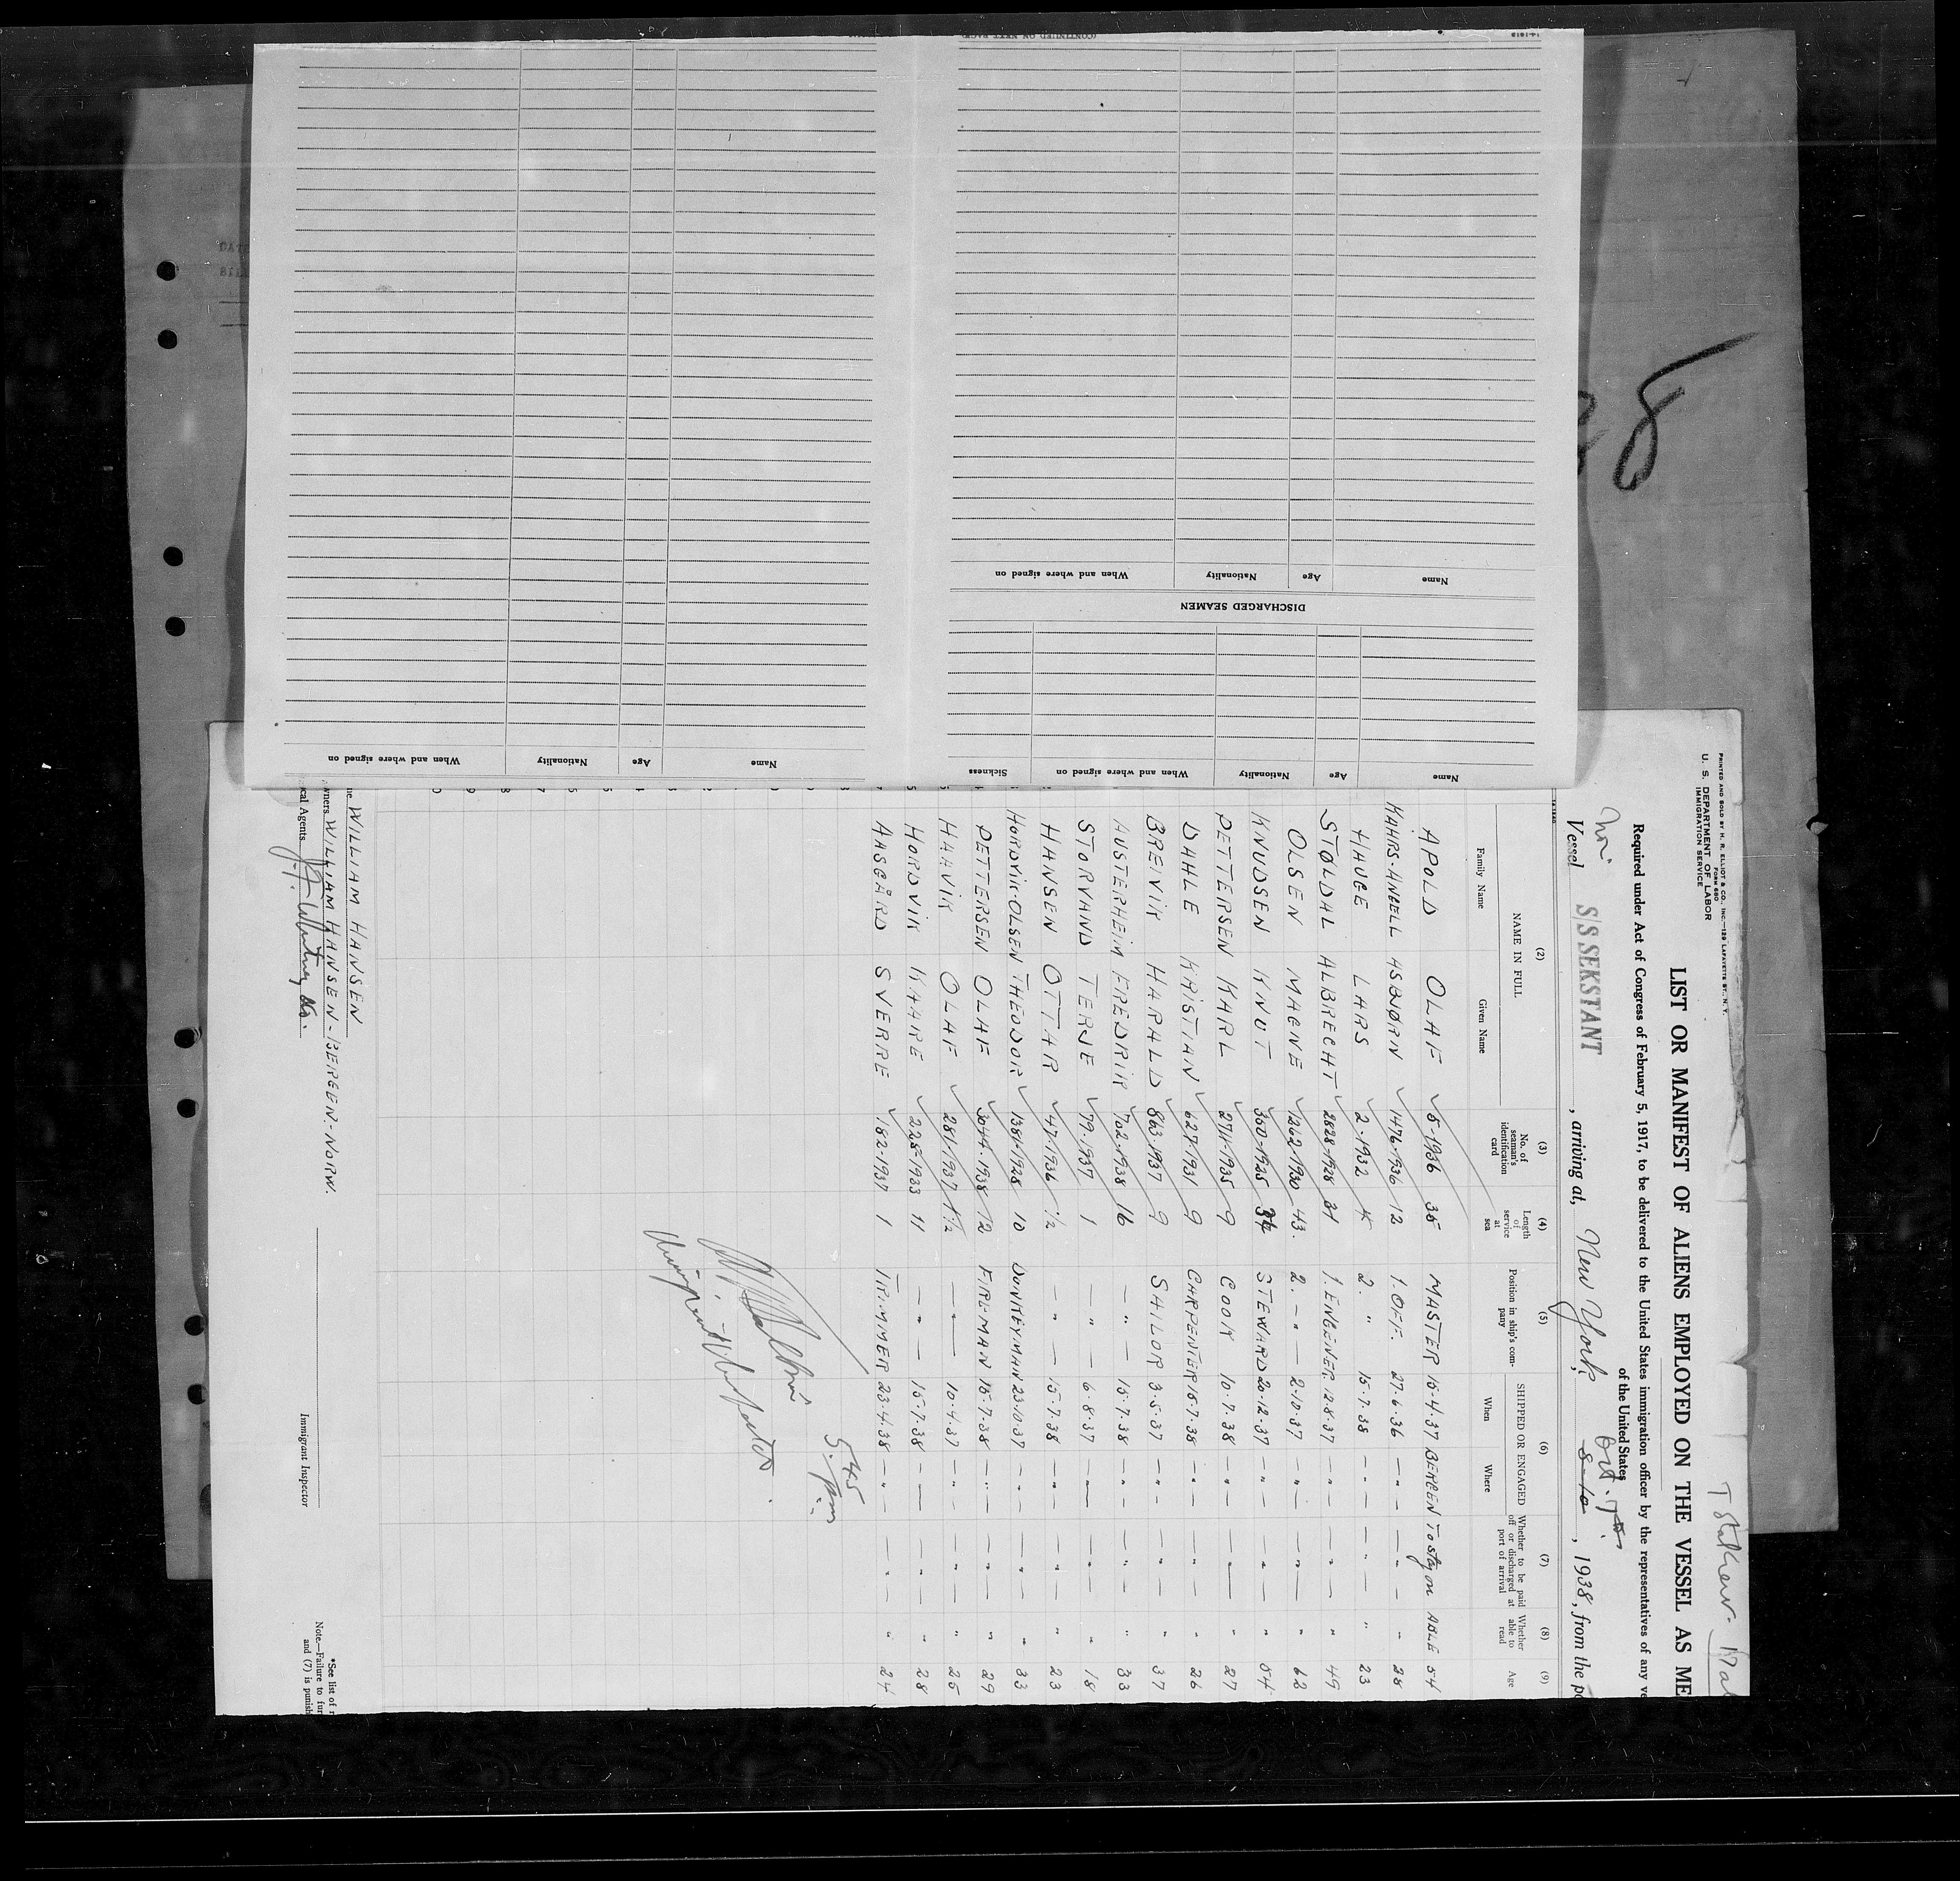 PRINTED AND SOLD BY H. R. ELLIOT & CO., INC.—129 LAFAYETTE ST., N. Y.
FORM 680
U. S. DEPARTMENT OF LABOR
IMMIGRATION SERVICE
LIST OR MANIFEST OF ALIENS EMPLOYED ON THE VESSEL AS ME
Required under Act of Congress of February 5, 1917, to be delivered to the United States immigration officer by the representatives of any ve
of the United States
Nor. Oct. 7th
Vessel S/S SEKSTANT, arriving at, New York, 8-10, 1938, from the po
(2) (3) (4) (5) (6) (7) (8) (9)
NAME IN FULL
Family Name Given Name
No. of seaman's identification card
Length of service at sea
Position in ship's company
SHIPPED OR ENGAGED
When Where
Whether to be paid off or discharged at port of arrival
Whether able to read
Age
APOLD OLAF 5-1936 35 MASTER 15-4-37 BERGEN To stay on ABLE 54
KAHRS-ANGELL ASBJØRN 1476-1936 12 1. OFF. 27-6-36 — " — — " — " 28
HAUGE LARS 2-1932 2. " 15-7-38 — " — — " — " 23
STØLDAL ALBRECHT 2828-1928 31 1. ENGENER 12-8-37 — " — — " — " 49
OLSEN MAGNE 1262-1930 43 2. — " — 2-10-37 — " — — " — " 62
KNUDSEN KNUT 360-1925 34 STEWARD 20-12-37 — " — — " — " 54
PETTERSEN KARL 2711-1935 9 COOK 10-7-38 — " — — " — " 27
DAHLE KRISTIAN 627-1931 9 CARPENTER 15-7-38 — " — — " — " 26
BREIVIK HARALD 863-1937 9 SAILOR 3-5-37 — " — — " — " 37
AUSTERHEIM FREDRIK 702-1938 16 — " — 15-7-38 — " — — " — " 33
STORVAND TERJE 79-1937 1 — " — 6-8-37 — " — — " — " 18
HANSEN OTTAR 47-1936 1/2 — " — 15-7-38 — " — — " — " 23
HORDVIK-OLSEN THEODOR 1381-1928 10 DONKEYMAN 23-10-37 — " — — " — " 33
PETTERSEN OLAF 3044-1938 12 FIREMAN 15-7-38 — " — — " — " 29
HAAVIK OLAF 281-1937 1 1/2 — " — 10-4-37 — " — — " — " 25
HORDVIK KAARE 225-1933 11 — " — 15-7-38 — " — — " — " 28
AASGÅRD SVERRE 182-1937 1 TRIMMER 23-4-38 — " — — " — " 24
5:45 pm
WILLIAM HANSEN
wners WILLIAM HANSEN - BERGEN - NORW.
cal Agents
Immigrant Inspector
*See list of r
Note.—Failure to fur
and (7) is punish
DISCHARGED SEAMEN
Name Age Nationality When and where signed on
Name Age Nationality When and where signed on Sickness
Name Age Nationality When and where signed on
(CONTINUED ON NEXT PAGE)